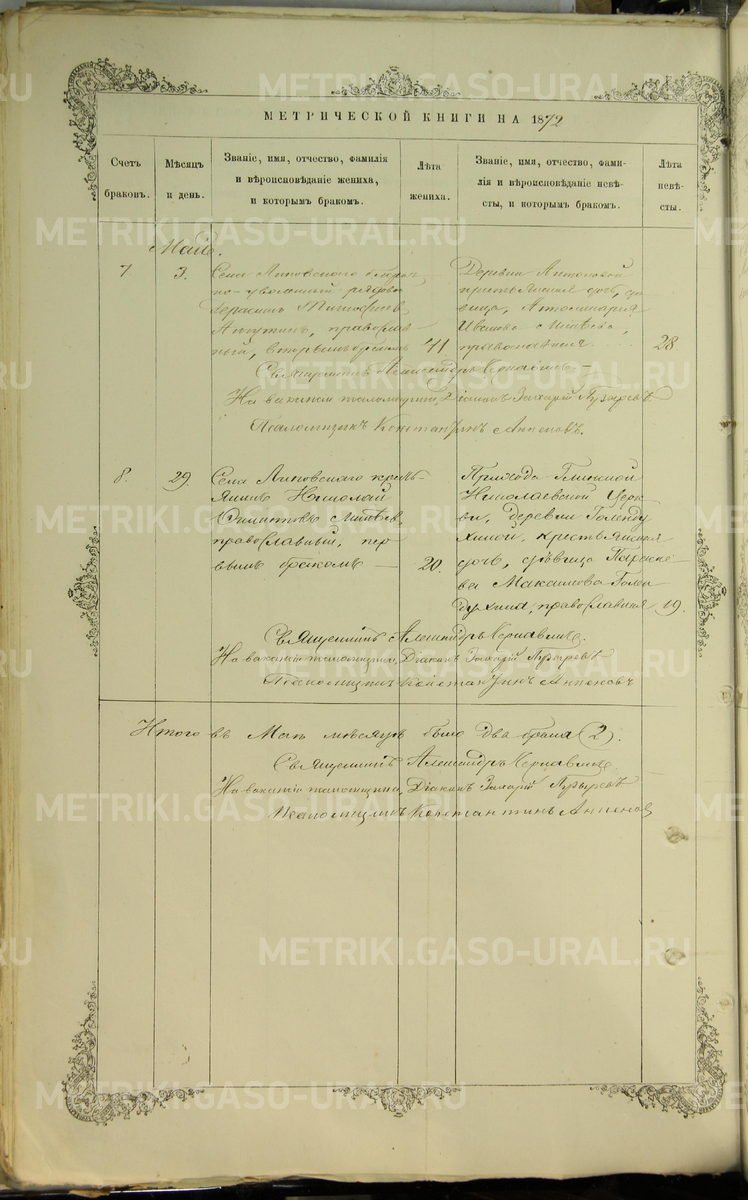 МЕТРИЧЕСКОЙ КНИГИ НА 1872
Счетъ браковъ.
Мѣсяцъ и день.
Званіе, имя, отчество, фамилія
и вѣроисповѣданіе жениха,
и которымъ бракомъ.
Лѣта
жениха.
Званіе, имя, отчество, фами-
лія и вѣроисповѣданіе невѣ-
сты, и которымъ бракомъ.
Лѣта
невѣ-
сты.
Май.
7
3.
Села Липовскаго
уволенный рядовой
Герасимъ Тимофѣевъ
православ-
ный, вторымъ бракомъ
41
Деревни Антоновой
дочь, дѣ-
вица,
Иванова
православная
28
Священникъ Александръ
На ваканціи псаломщика, Діаконъ Захарій Пузыревъ
Псаломщикъ Константинъ
8.
29.
Села Липовскаго кресть-
янинъ Николай
православный, пер-
вымъ бракомъ
20.
Прихода Глинской
Николаевской Церк-
ви, деревни Голенду
хиной, крестьянская
дочь, дѣвица Параске-
ва Максимова Голен
духина, православная
19.
Священникъ Александръ
На ваканціи псаломщика, Діаконъ Захарій Пузыревъ
Псаломщикъ Константинъ
Итого въ Маѣ мѣсяцѣ было два брака (2).
Священникъ Александръ
На ваканціи псаломщика, Діаконъ Захарій Пузыревъ
Псаломщикъ Константинъ
METRIKI.GASO-URAL.RU